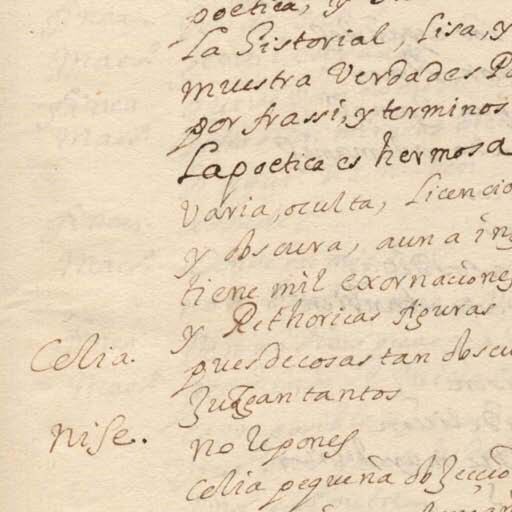 poetica, y
La historial, lisa, y
muestra Verdades
por frassi, y terminos
La poetica es hermosa
Varia, oculta, licencio
y obscura, aun a ing
tiene mil exornaciones
y Rethoricas figuras
Celia. pues de cosas tan obscu
Juzgan tantos
Nise. no le pones
Celia pequeña obZección